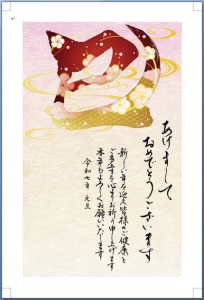 あけまして
おめでとうございます
新しい年を迎え皆様のご健康と
ご多幸を心よりお祈り申し上げます
本年もよろしくお願いいたします
令和七年 元旦